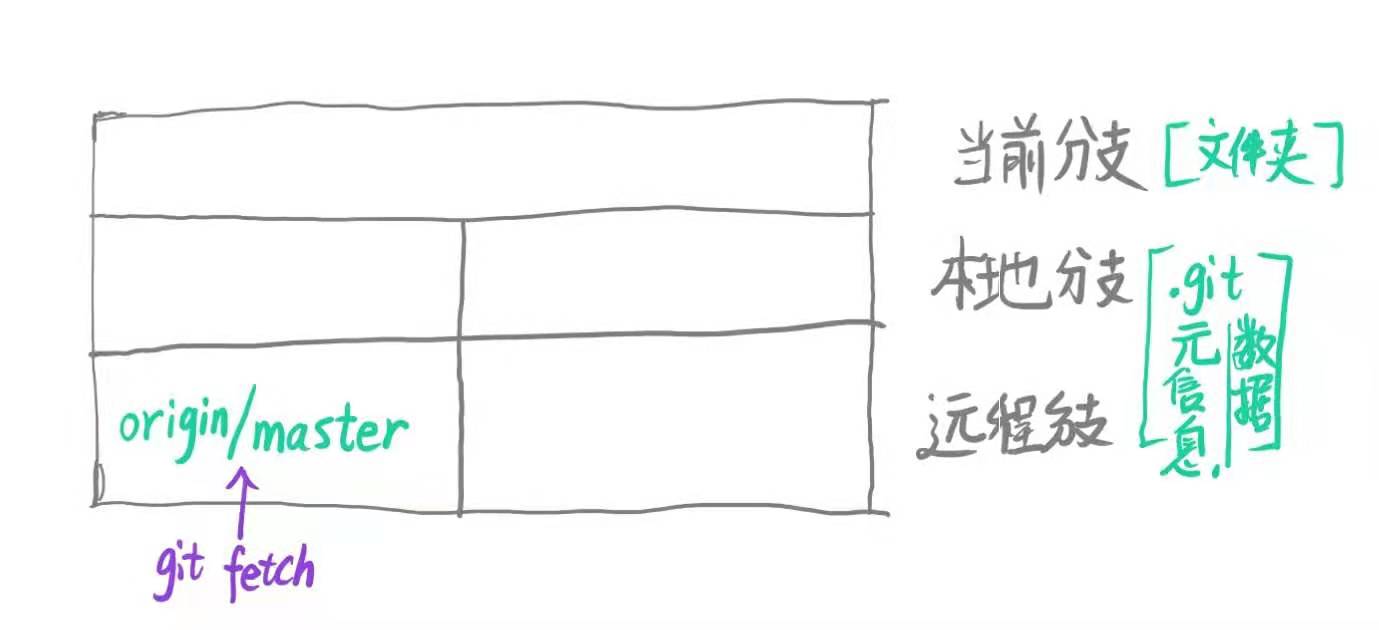 当前分支 [文件夹]
本地分支 [.git
元信息. | 数据]
远程分支
origin/master
git fetch